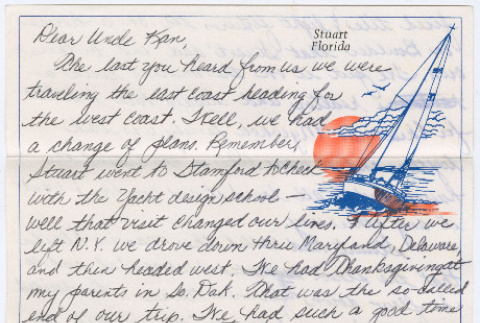 Stuart
Florida
Dear Uncle Kan,
The last you heard from us we were
traveling the east coast heading for
the west coast. Well, we had
a change of plans. Remember,
Stuart went to Stamford to check
with the Yacht design school –
well that visit changed our lives. After we
left N.Y. we drove down thru Maryland, Delaware,
and then headed west. We had Thanksgiving at
my parents in So. Dak. That was the so-called
end of our trip. We had such a good time